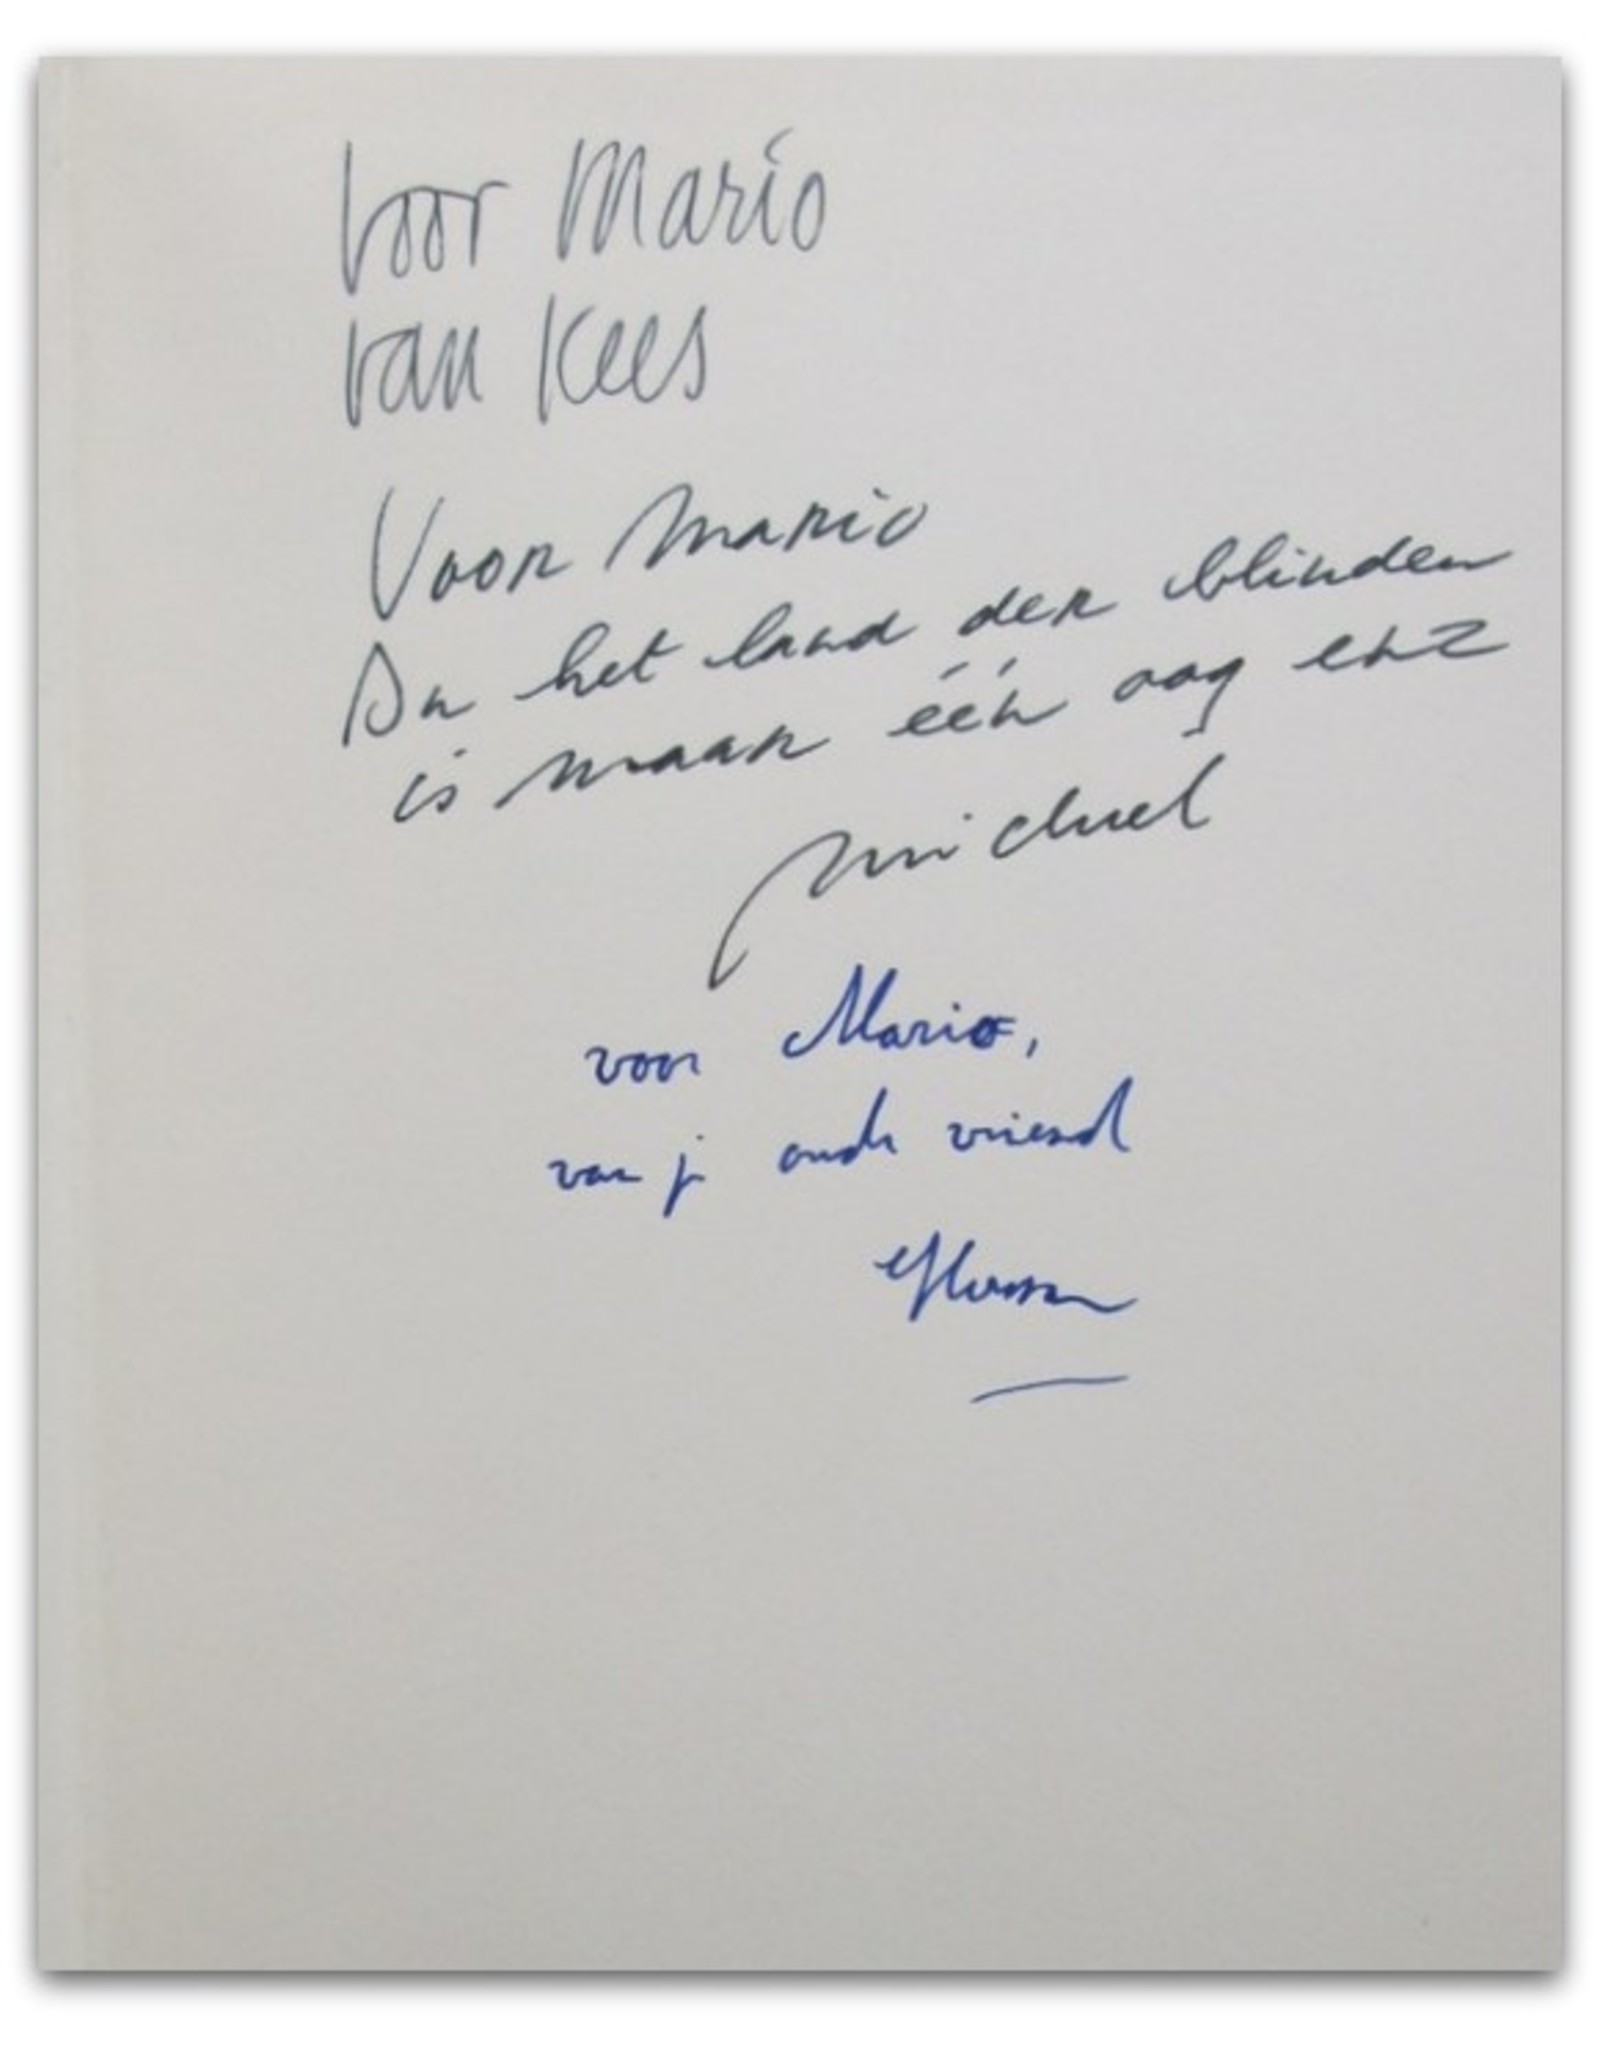 Voor Mario
van Kees
Voor Mario
In het land der blinden
is maar één oog enz
Michiel
voor Mario,
van je oude vriend